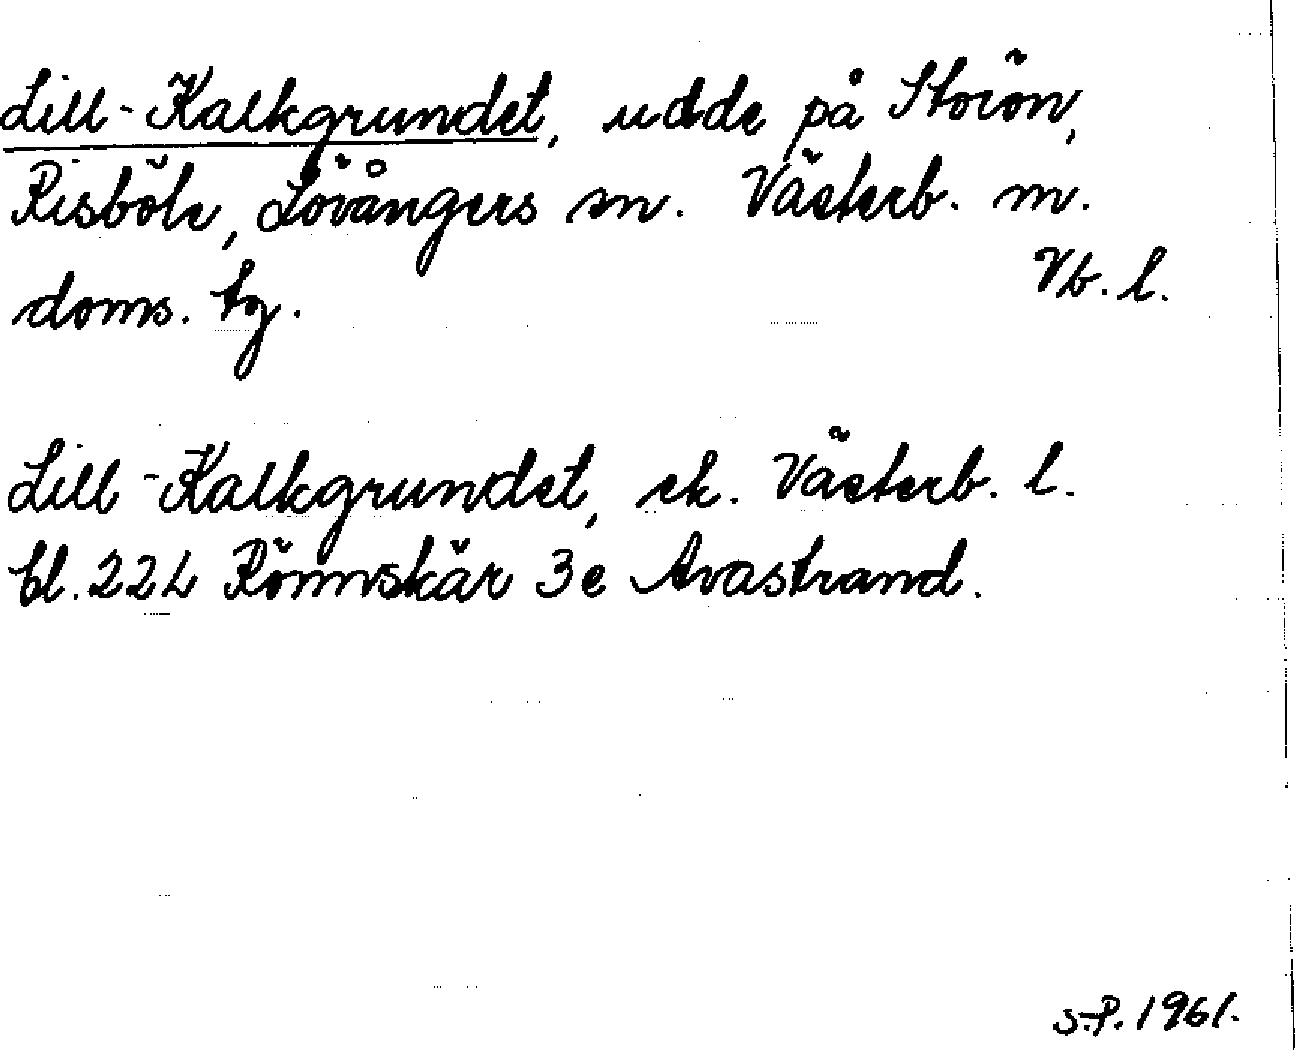 Lill-Kalkgrundet, udde på Storön,
Risböle, Lövångers sn. Västerb. m.
doms. tg. Vb. l.
Lill-Kalkgrundet, ek. Västerb. l.
bl. 22L Rönnskär 3e Avastrand.
S.P. 1961.